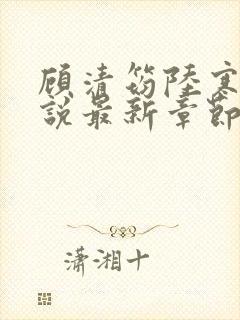 顾清筠陸寒
說最新章節
瀟湘十